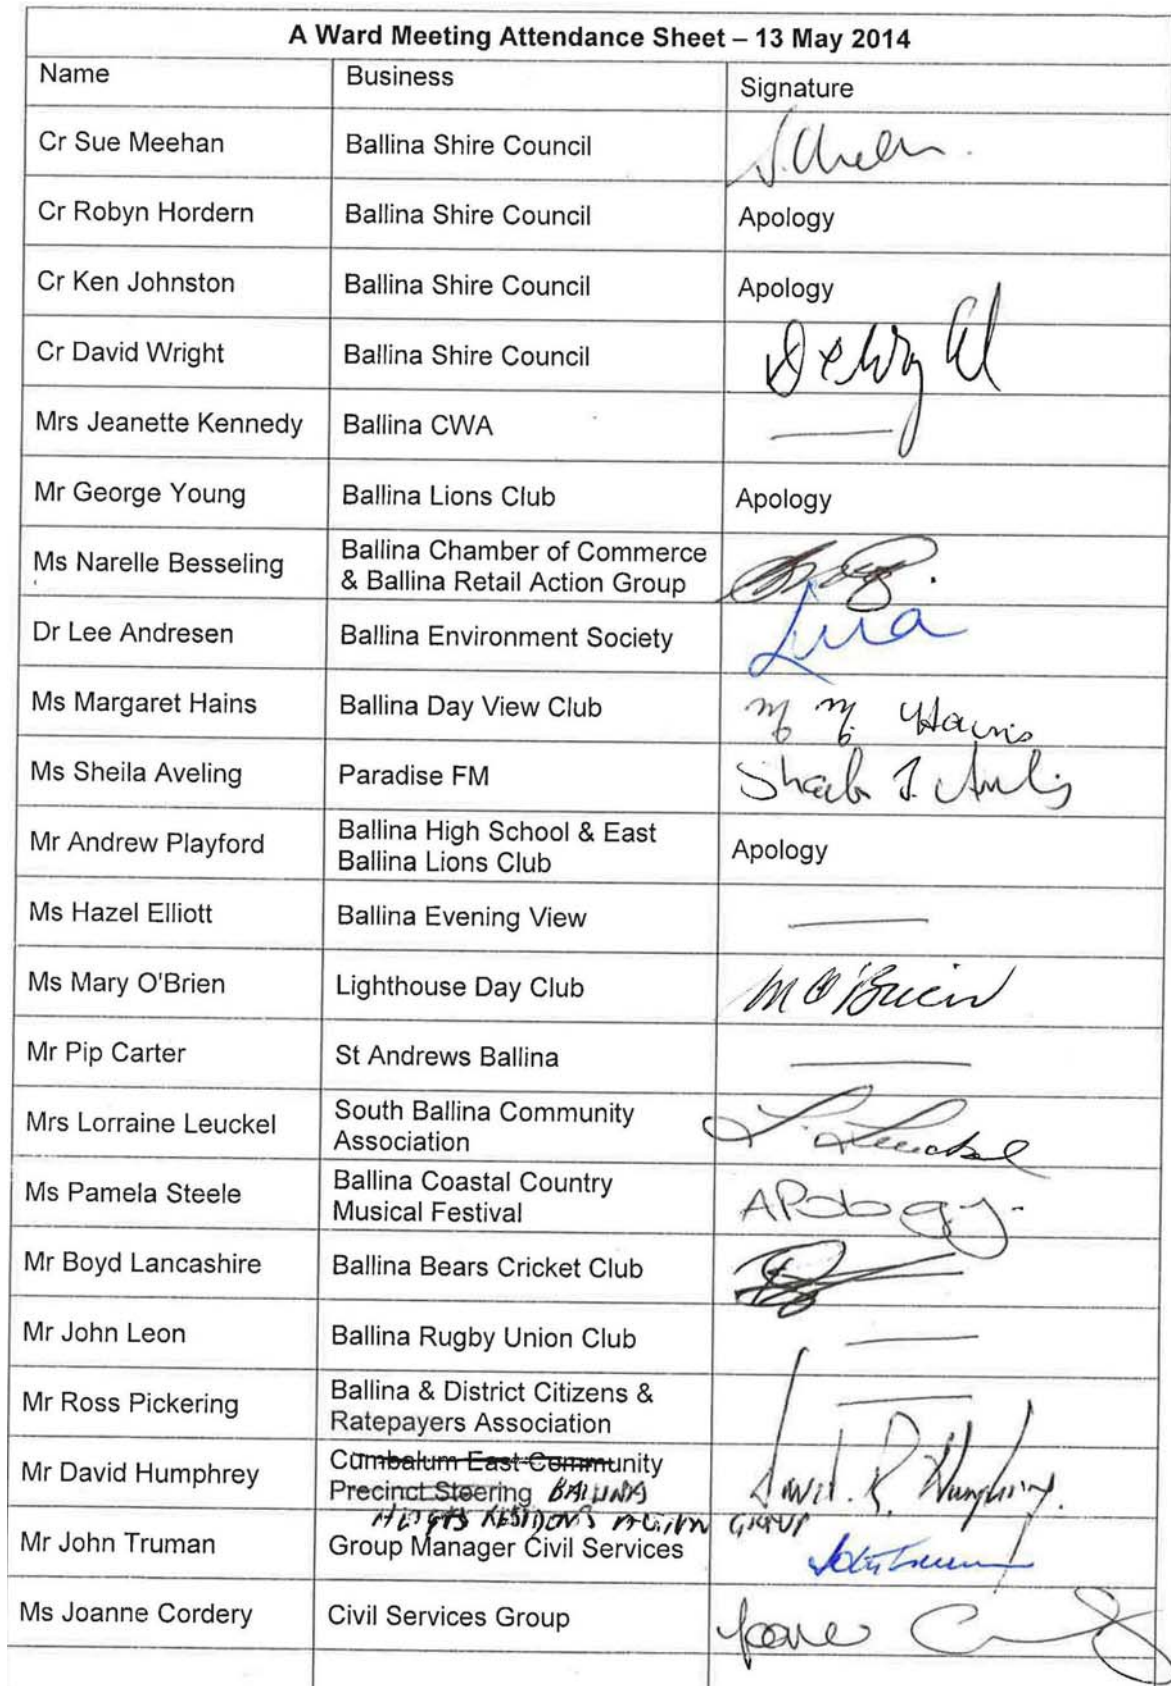 A Ward Meeting Attendance Sheet – 13 May 2014
Name Business Signature
Cr Sue Meehan Ballina Shire Council
Cr Robyn Hordern Ballina Shire Council Apology
Cr Ken Johnston Ballina Shire Council Apology
Cr David Wright Ballina Shire Council
Mrs Jeanette Kennedy Ballina CWA
Mr George Young Ballina Lions Club Apology
Ms Narelle Besseling Ballina Chamber of Commerce
& Ballina Retail Action Group
Dr Lee Andresen Ballina Environment Society
Ms Margaret Hains Ballina Day View Club M M Hains
Ms Sheila Aveling Paradise FM
Mr Andrew Playford Ballina High School & East
Ballina Lions Club Apology
Ms Hazel Elliott Ballina Evening View
Ms Mary O'Brien Lighthouse Day Club M O'Brien
Mr Pip Carter St Andrews Ballina
Mrs Lorraine Leuckel South Ballina Community
Association L. Leuckel
Ms Pamela Steele Ballina Coastal Country
Musical Festival APology.
Mr Boyd Lancashire Ballina Bears Cricket Club
Mr John Leon Ballina Rugby Union Club
Mr Ross Pickering Ballina & District Citizens &
Ratepayers Association
Mr David Humphrey Cumbalum East Community
Precinct Steering BALLINA David R Humphrey.
HEIGTS RESIDENTS ACTION GROUP
Mr John Truman Group Manager Civil Services
Ms Joanne Cordery Civil Services Group